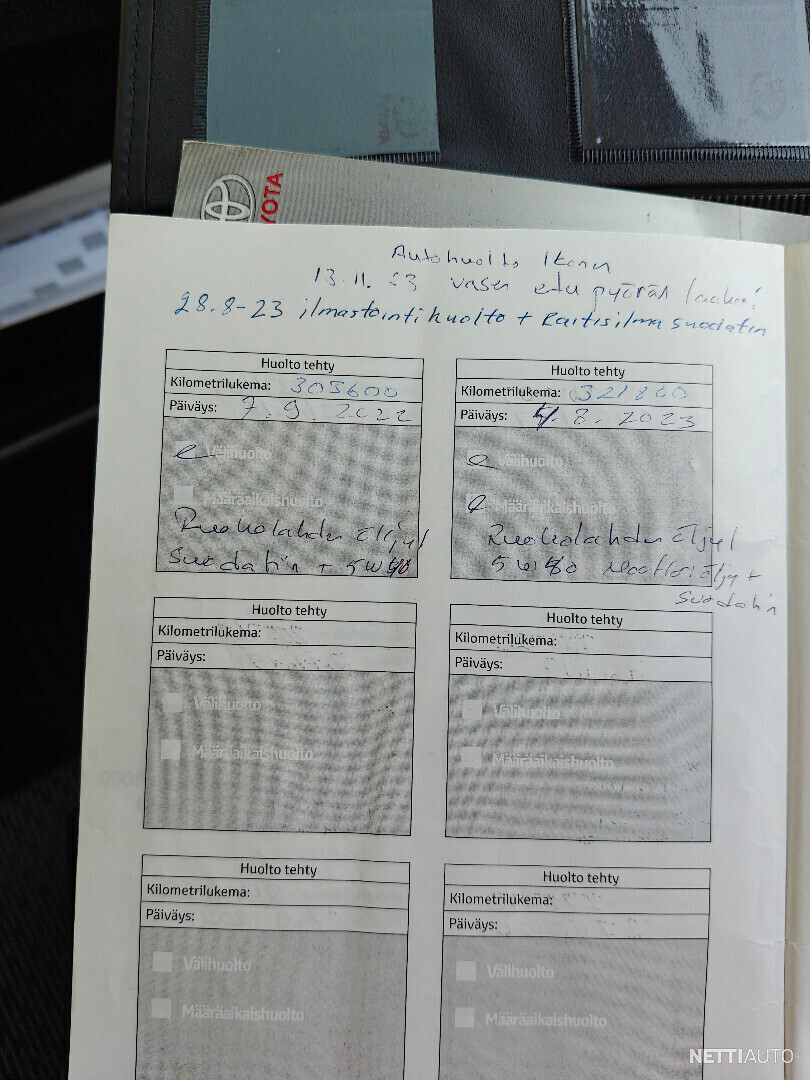 TOYOTA
Autohuolto Ikonen
13.11.23 vasen etu pyörän laakeri
28.8-23 ilmastointihuolto + Raitisilma suodatin
Huolto tehty
Kilometrilukema: 305600
Päiväys: 7.9.2022
Välihuolto
Määräaikaishuolto
Ruokolahden öljyt
Suodatin + 5W40
Huolto tehty
Kilometrilukema: 321800
Päiväys: 4.8.2023
Välihuolto
Määräaikaishuolto
Ruokolahden öljyt
5W40 moottoriöljy +
Suodatin
Huolto tehty
Kilometrilukema:
Päiväys:
Välihuolto
Määräaikaishuolto
Huolto tehty
Kilometrilukema:
Päiväys:
Välihuolto
Määräaikaishuolto
Huolto tehty
Kilometrilukema:
Päiväys:
Välihuolto
Määräaikaishuolto
Huolto tehty
Kilometrilukema:
Päiväys:
Välihuolto
Määräaikaishuolto
NETTIAUTO